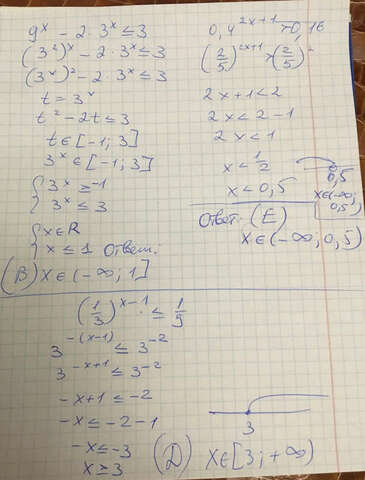 9^x - 2 · 3^x ≤ 3
(3²)^x - 2 · 3^x ≤ 3
(3^x)² - 2 · 3^x ≤ 3
t = 3^x
t² - 2t ≤ 3
t ∈ [-1; 3]
3^x ∈ [-1; 3]
{ 3^x ≥ -1
3^x ≤ 3
{ x ∈ R
x ≤ 1 Ответ:
(B) x ∈ (-∞; 1]
0,4^{2x+1} > 0,16
(2/5)^{2x+1} > (2/5)²
2x + 1 < 2
2x < 2 - 1
2x < 1
x < 1/2
x < 0,5
0,5
x ∈ (-∞;
0,5)
Ответ: (E)
x ∈ (-∞; 0,5)
(1/3)^{x-1} ≤ 1/9
3^{-(x-1)} ≤ 3^{-2}
3^{-x+1} ≤ 3^{-2}
-x+1 ≤ -2
-x ≤ -2-1
-x ≤ -3
x ≥ 3
3
(D) x ∈ [3; +∞)